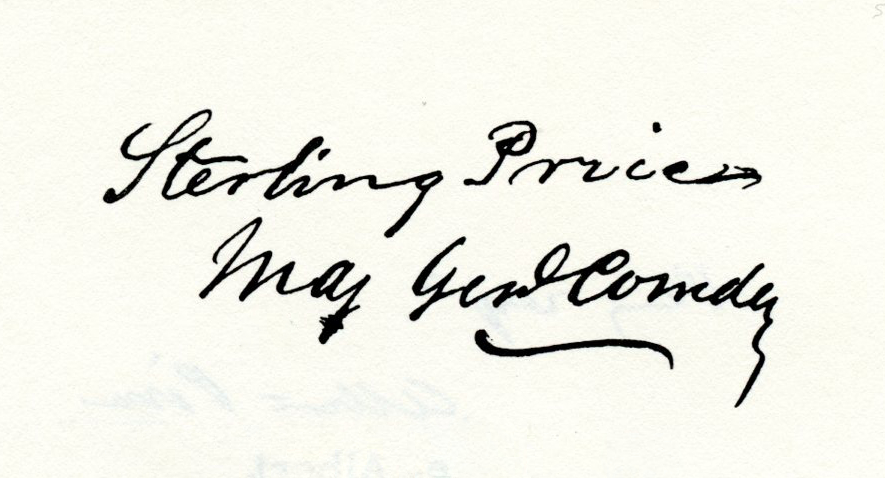 Sterling Price
Maj Genl Comdg